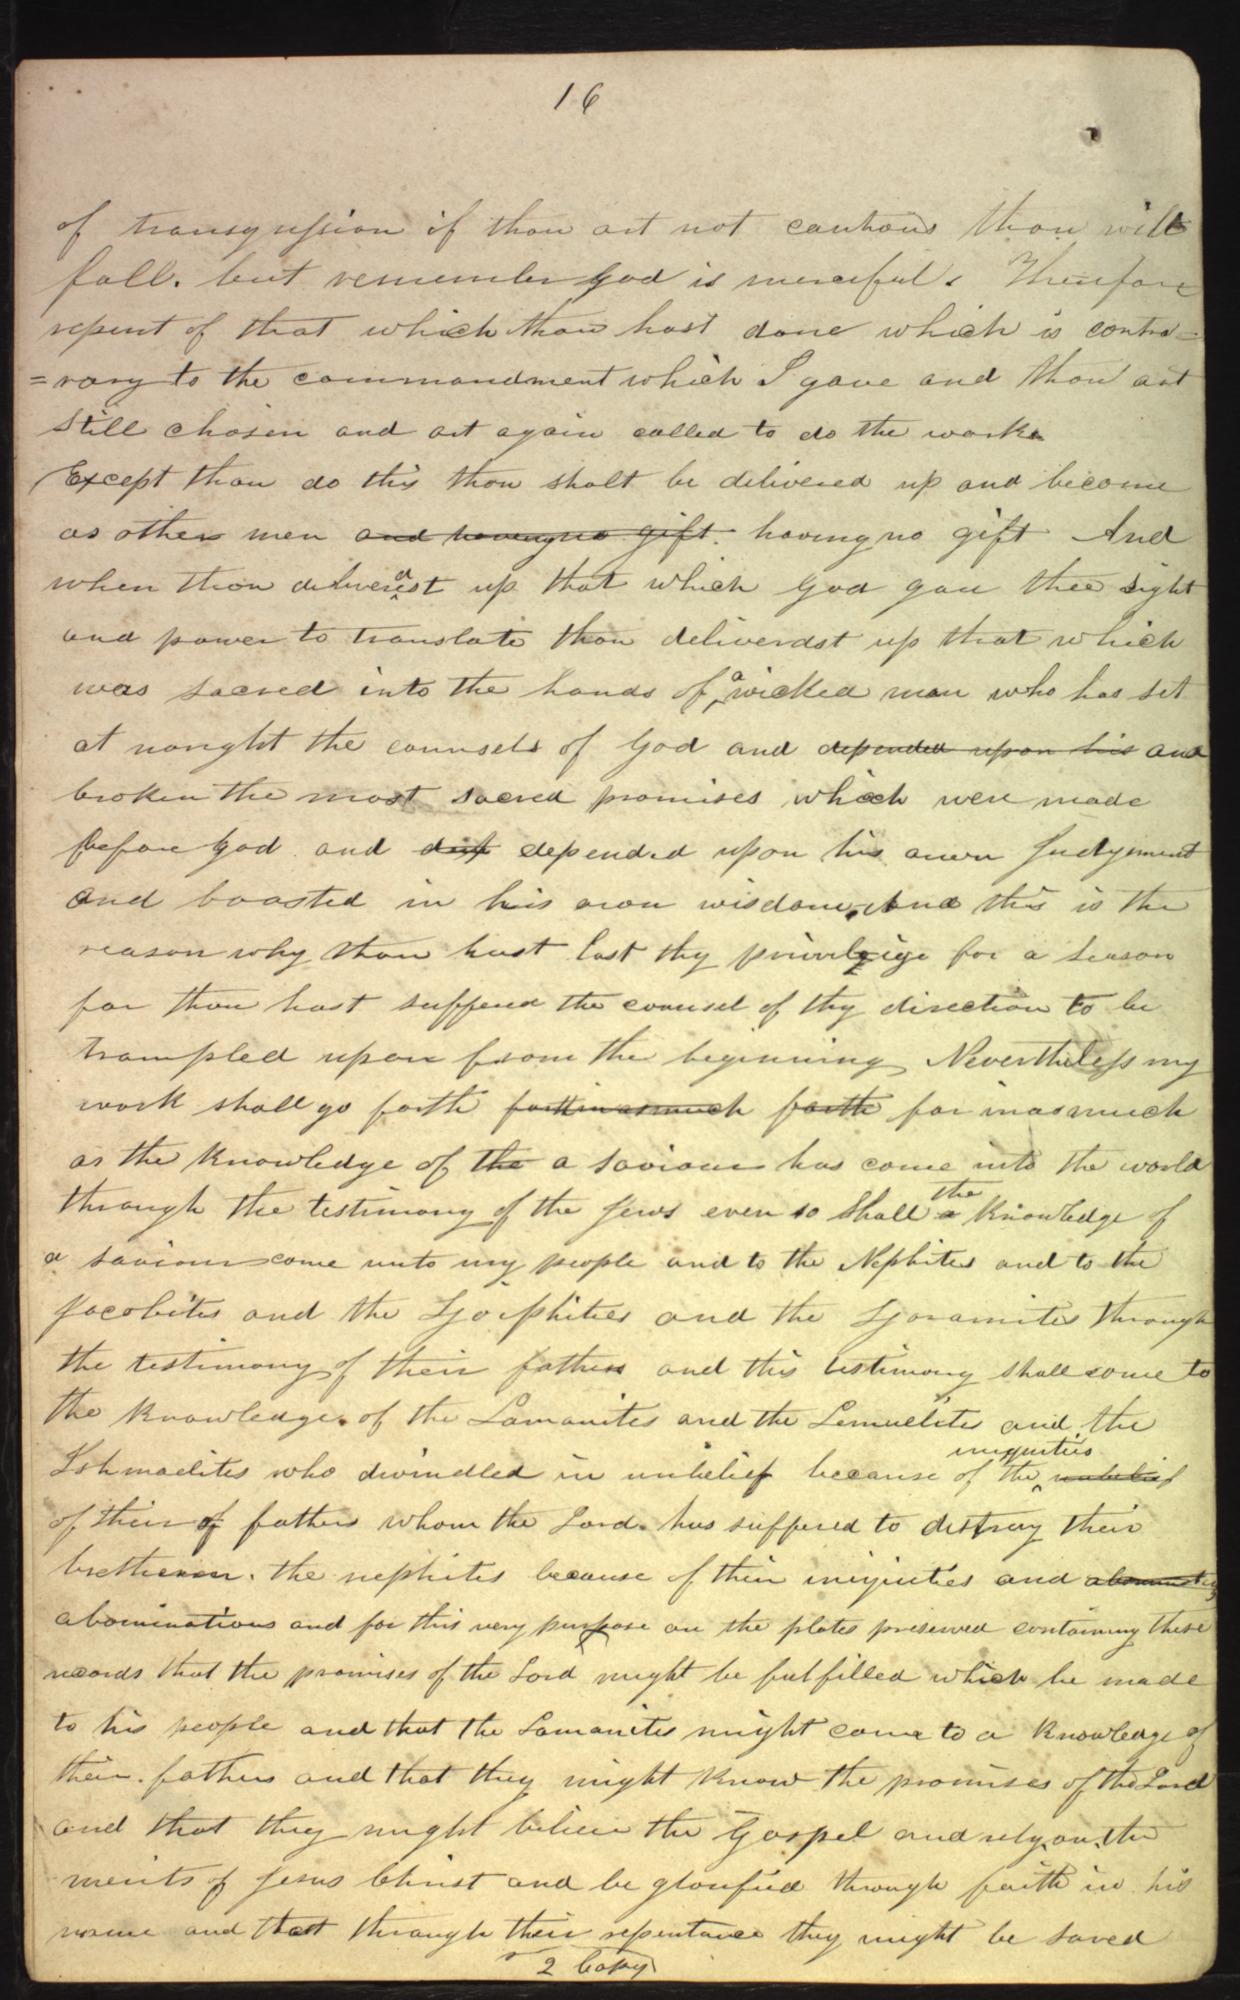 16
of transgression if thou art not cautious thou wilt
fall. but remember God is merciful. Therefore
repent of that which thou hast done which is contra=
=rary to the commandment which I gave and thou art
still chosen and art again called to do the work
Except thou do this thou shalt be delivered up and become
as other men and having no gift. having no gift And
when thou deliveredst up that which God gave thee sight
and power to translate thou deliverdst up that which
was sacred into the hands of a wicked man who has set
at nought the counsels of God and depended upon his and
broken the most sacred promises which were made
before God and dep depended upon his own Judgement
and boasted in his own wisdom. And this is the
reason why thou hast lost thy privileige for a season
for thou hast suffered the counsel of thy direction to be
trampled upon from the beginning Nevertheless my
work shall go forth forth inasmuch forth for inasmuch
as the knowledge of the a saviour has come into the world
through the testimony of the Jews even so shall a the knowledge of
a saviour come unto my people and to the Nephites and to the
Jacobites and the Josephites and the Zoramites through
the testimony of their fathers and this testimony shall come to
the knowledge. of the Lamanites and the Lemuelites and the
Ishmaelites who dwindled in unbelief because of the iniquities unbelief
of their of fathers whom the Lord. has suffered to destroy their
bretheren. the nephites because of their iniquities and abominations
abominations and for this very purpose are the plates preserved containing these
records that the promises of the Lord might be fulfilled which he made
to his people and that the Lamanites might come to a knowledge of
their fathers and that they might know the promises of the Lord
and that they might believe the Gospel and rely on the
merits of Jesus Christ and be glorified through faith in his
name and that through their repentance they might be saved
2 Copy